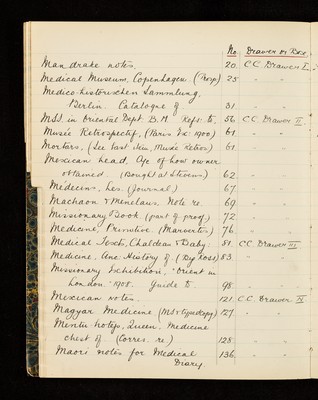 No Drawer or Box
Mandrake notes. 20. C.C. Drawer I.
Medical Museum, Copenhagen (Prosp) 25 " "
Medico-historischen Sammlung,
Berlin. Catalogue of 31. " "
M.S.S. in Oriental Dept. B.M. Refs. to. 56 C.C Drawer II.
Musée Retrospectif, (Paris Ex: 1900) 61 " "
Mortars, (See last item, Musée Retros) 61 " "
Mexican head, A/c of how owner
obtained. (Bought at Stevens) 62 " "
Médecins, Les. (Journal.) 67 " "
Machaon & Menelaus. Note re. 69 " "
Missionary Book (part of proof.) 72 " "
Medicine, Primitive. (Marverts) 76 " "
Medical Texts, Chaldean & Baby. 81 C.C Drawer III
Medicine, Anc: History of. (By Rose) 83 " "
Missionary Exhibition, "Orient in
London" 1908. Guide to. 98. " "
Mexican notes. 121. C.C. Drawer IV
Magyar Medicine (MS & typed copy) 127 " "
Mentu hotep, Queen. Medicine
chest of (Corres. re.) 128. " "
Maori notes for Medical
Diary 136. " "